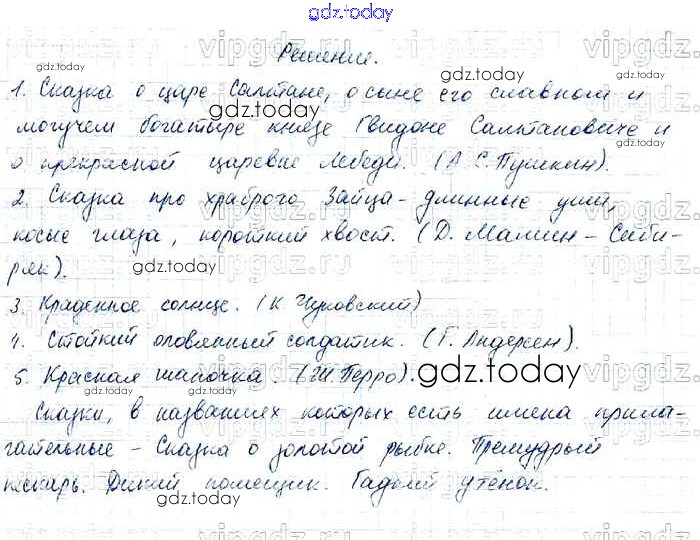 gdz.today
Решение.
1. Сказка о царе Салтане, о сыне его славном и
могучем богатыре князе Гвидоне Салтановиче и
о прекрасной царевне Лебеди. (А. С. Пушкин).
2. Сказка про храброго Зайца - длинные уши,
косые глаза, короткий хвост. (Д. Мамин - Сиби-
ряк).
3. Краденное солнце. (К. Чуковский)
4. Стойкий оловянный солдатик. (Г. Андерсен).
5. Красная шапочка. (Ш. Перро).
Сказки, в названиях которых есть имена прила-
гательные - Сказка о золотой рыбке. Премудрый
пескарь. Дикий помещик. Гадкий утёнок.
gdz.today
gdz.today
gdz.today
gdz.today
gdz.today
gdz.today
gdz.today
gdz.today
vipgdz.ru